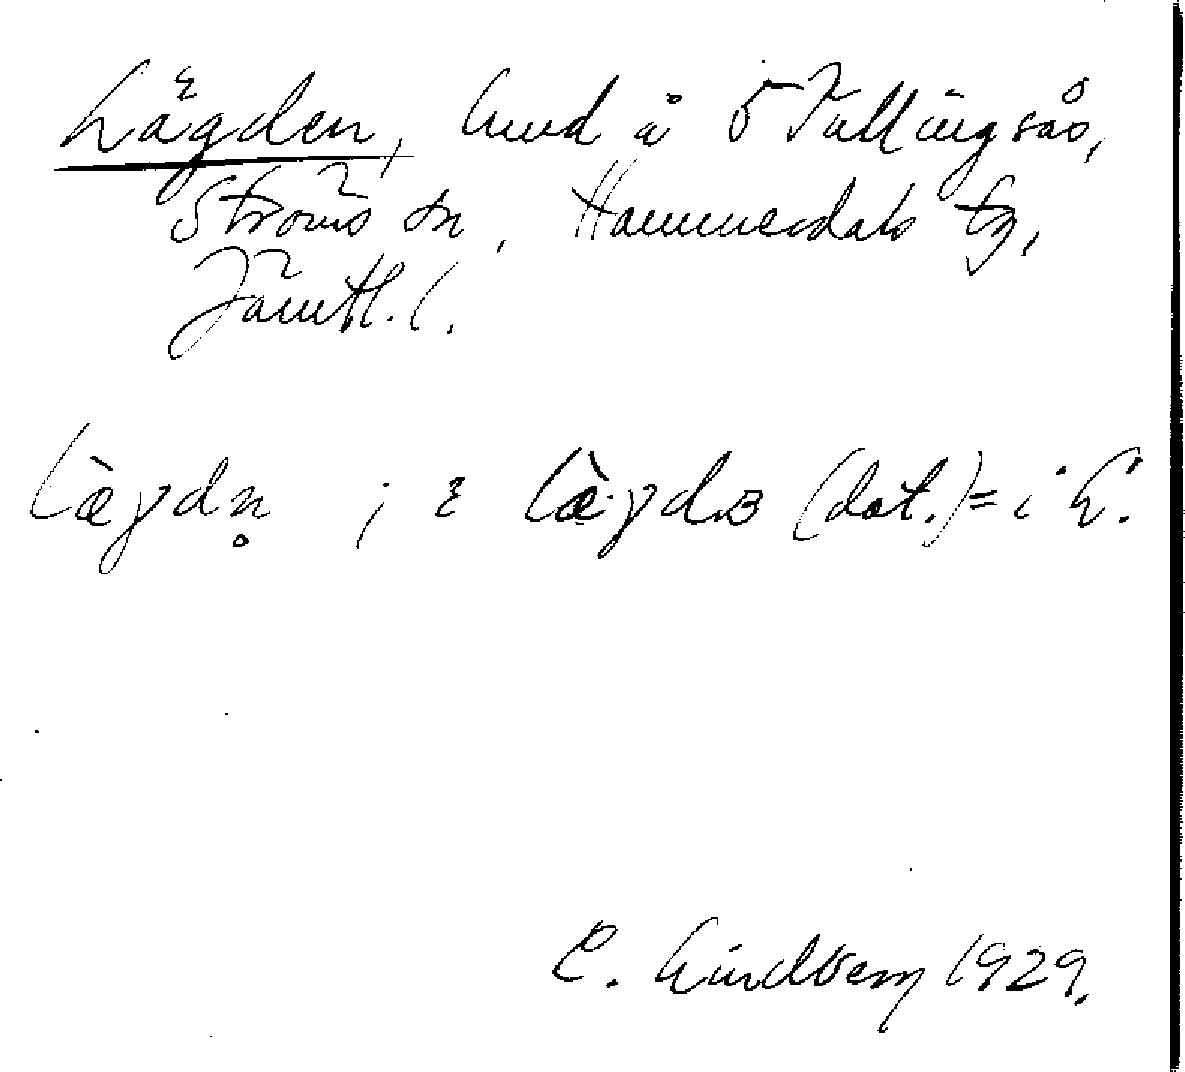 Lägden, lund å 5 Tullingsås,
Ströms sn, Hammerdals tg,
Jämtl. l.
lὰgdn̥ ; i læ̀gdɞ (dat.) = i L.
E. Lindberg 1929.